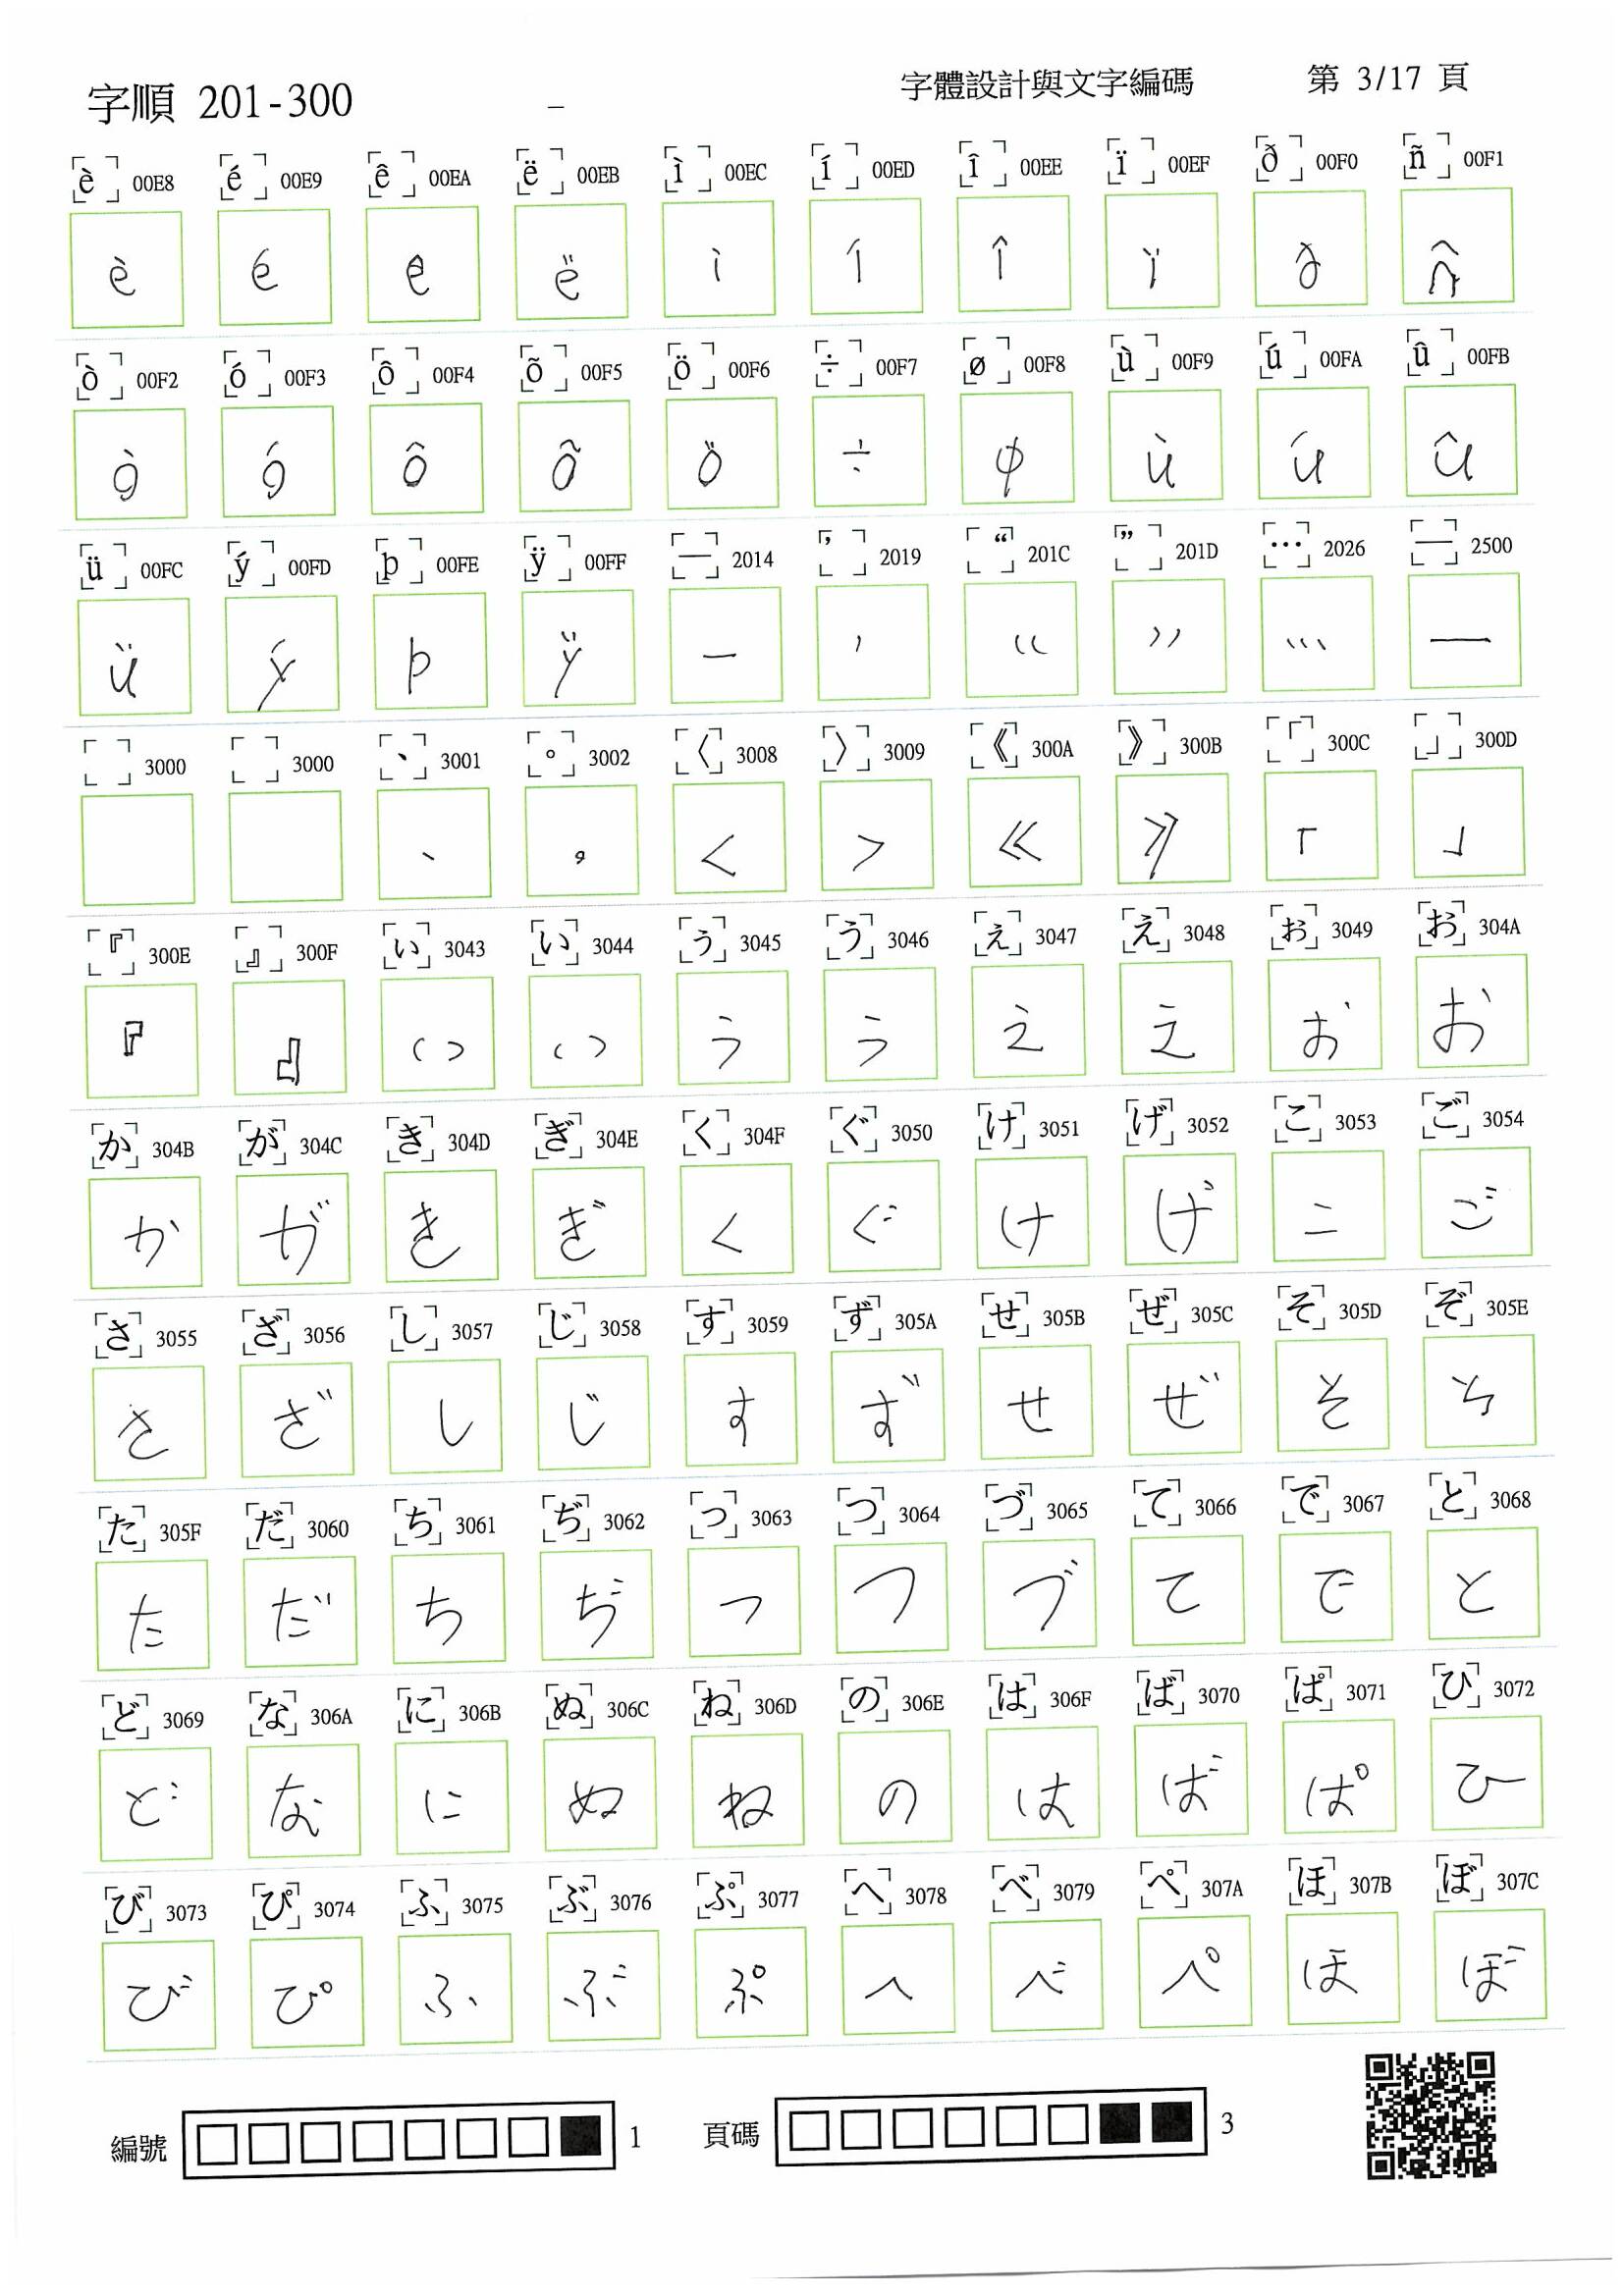 字順 201-300 – 字體設計與文字編碼 第 3/17 頁
è 00E8 é 00E9 ê 00EA ë 00EB ì 00EC í 00ED î 00EE ï 00EF ð 00F0 ñ 00F1
è é ê ë ì í î ï ð ñ
ò 00F2 ó 00F3 ô 00F4 õ 00F5 ö 00F6 ÷ 00F7 ø 00F8 ù 00F9 ú 00FA û 00FB
ò ó ô õ ö ÷ ø ù ú û
ü 00FC ý 00FD þ 00FE ÿ 00FF — 2014 ’ 2019 “ 201C ” 201D … 2026 ─ 2500
ü ý þ ÿ — ’ “ ” … ─
3000 3000 、 3001 。 3002 〈 3008 〉 3009 《 300A 》 300B 「 300C 」 300D
、 。 〈 〉 《 》 「 」
『 300E 』 300F ぃ 3043 い 3044 ぅ 3045 う 3046 ぇ 3047 え 3048 ぉ 3049 お 304A
『 』 ぃ い ぅ う ぇ え ぉ お
か 304B が 304C き 304D ぎ 304E く 304F ぐ 3050 け 3051 げ 3052 こ 3053 ご 3054
か が き ぎ く ぐ け げ こ ご
さ 3055 ざ 3056 し 3057 じ 3058 す 3059 ず 305A せ 305B ぜ 305C そ 305D ぞ 305E
さ ざ し じ す ず せ ぜ そ
た 305F だ 3060 ち 3061 ぢ 3062 っ 3063 つ 3064 づ 3065 て 3066 で 3067 と 3068
た だ ち ぢ っ つ づ て で と
ど 3069 な 306A に 306B ぬ 306C ね 306D の 306E は 306F ば 3070 ぱ 3071 ひ 3072
ど な に ぬ ね の は ば ぱ ひ
び 3073 ぴ 3074 ふ 3075 ぶ 3076 ぷ 3077 へ 3078 べ 3079 ぺ 307A ほ 307B ぼ 307C
び ぴ ふ ぶ ぷ へ べ ぺ ほ ぼ
編號 1 頁碼 3